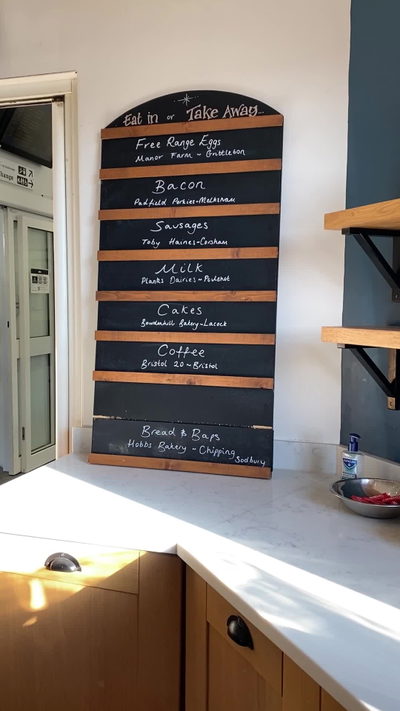 Eat in or Take Away...
Free Range Eggs
Manor Farm ~ Grittleton
Bacon
Padfield Porkies - Melksham
Sausages
Toby Haines - Corsham
Milk
Planks Dairies - Poulshot
Cakes
Bowdenhill Bakery - Lacock
Coffee
Bristol 20 ~ Bristol
Bread & Baps
Hobbs Bakery - Chipping
Sodbury